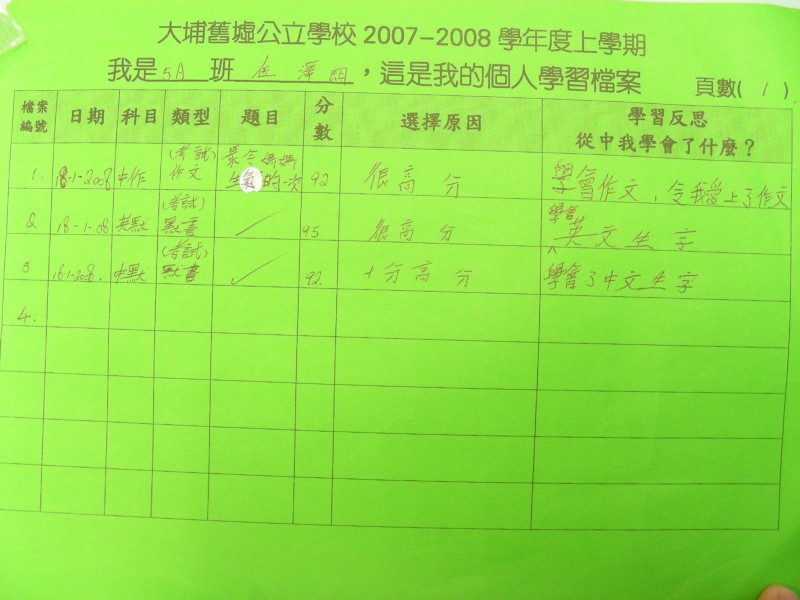 大埔舊墟公立學校 2007-2008 學年度上學期
我是 5A 班 澤 ，這是我的個人學習檔案 頁數( 1 )
檔案編號 日期 科目 類型 題目 分數 選擇原因 學習反思 從中我學會了什麼？
1. 18-1-2008 中作 (考試)作文 最令媽媽生氣的一次 92 很高分 學會作文，令我愛上了作文
2 18-1-08 英默 (考試)默書 95 很高分 學會英文生字
3 18-1-2008. 中默 (考試)默書 92. 十分高分 學會了中文生字
4.